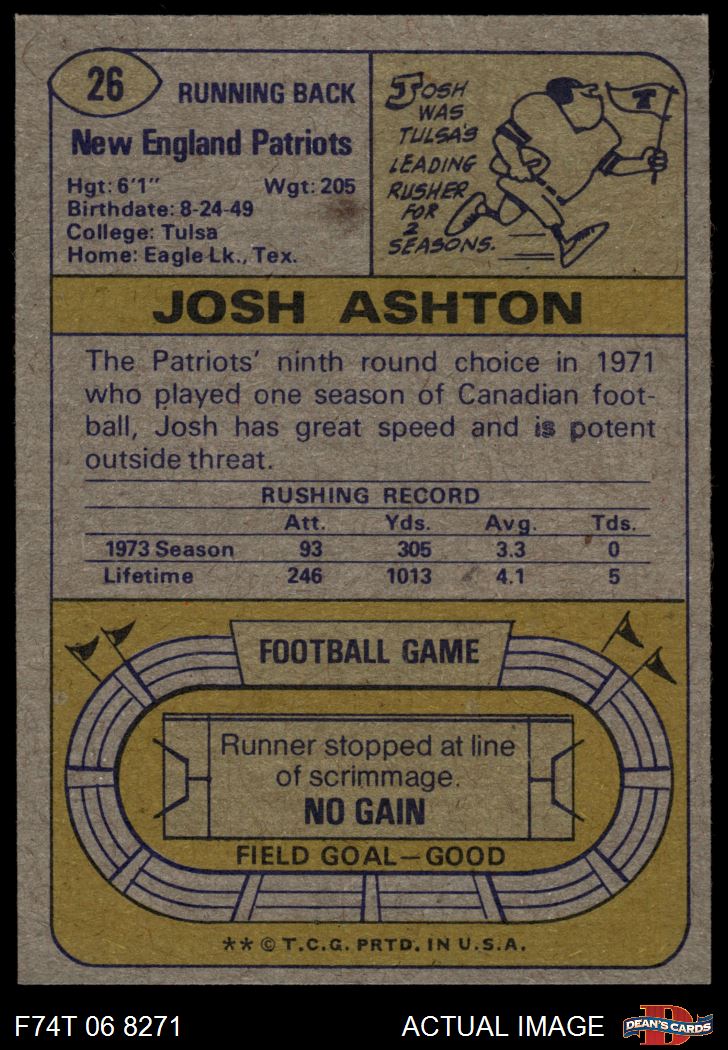 26
RUNNING BACK
New England Patriots
Hgt: 6'1" Wgt: 205
Birthdate: 8-24-49
College: Tulsa
Home: Eagle Lk., Tex.
JOSH
WAS
TULSA'S
LEADING
RUSHER
FOR
2
SEASONS.
T
JOSH ASHTON
The Patriots' ninth round choice in 1971
who played one season of Canadian foot-
ball, Josh has great speed and is potent
outside threat.
RUSHING RECORD
Att. Yds. Avg. Tds.
1973 Season 93 305 3.3 0
Lifetime 246 1013 4.1 5
FOOTBALL GAME
Runner stopped at line
of scrimmage.
NO GAIN
FIELD GOAL—GOOD
** © T.C.G. PRTD. IN U.S.A.
F74T 06 8271 ACTUAL IMAGE
D
DEAN'S CARDS